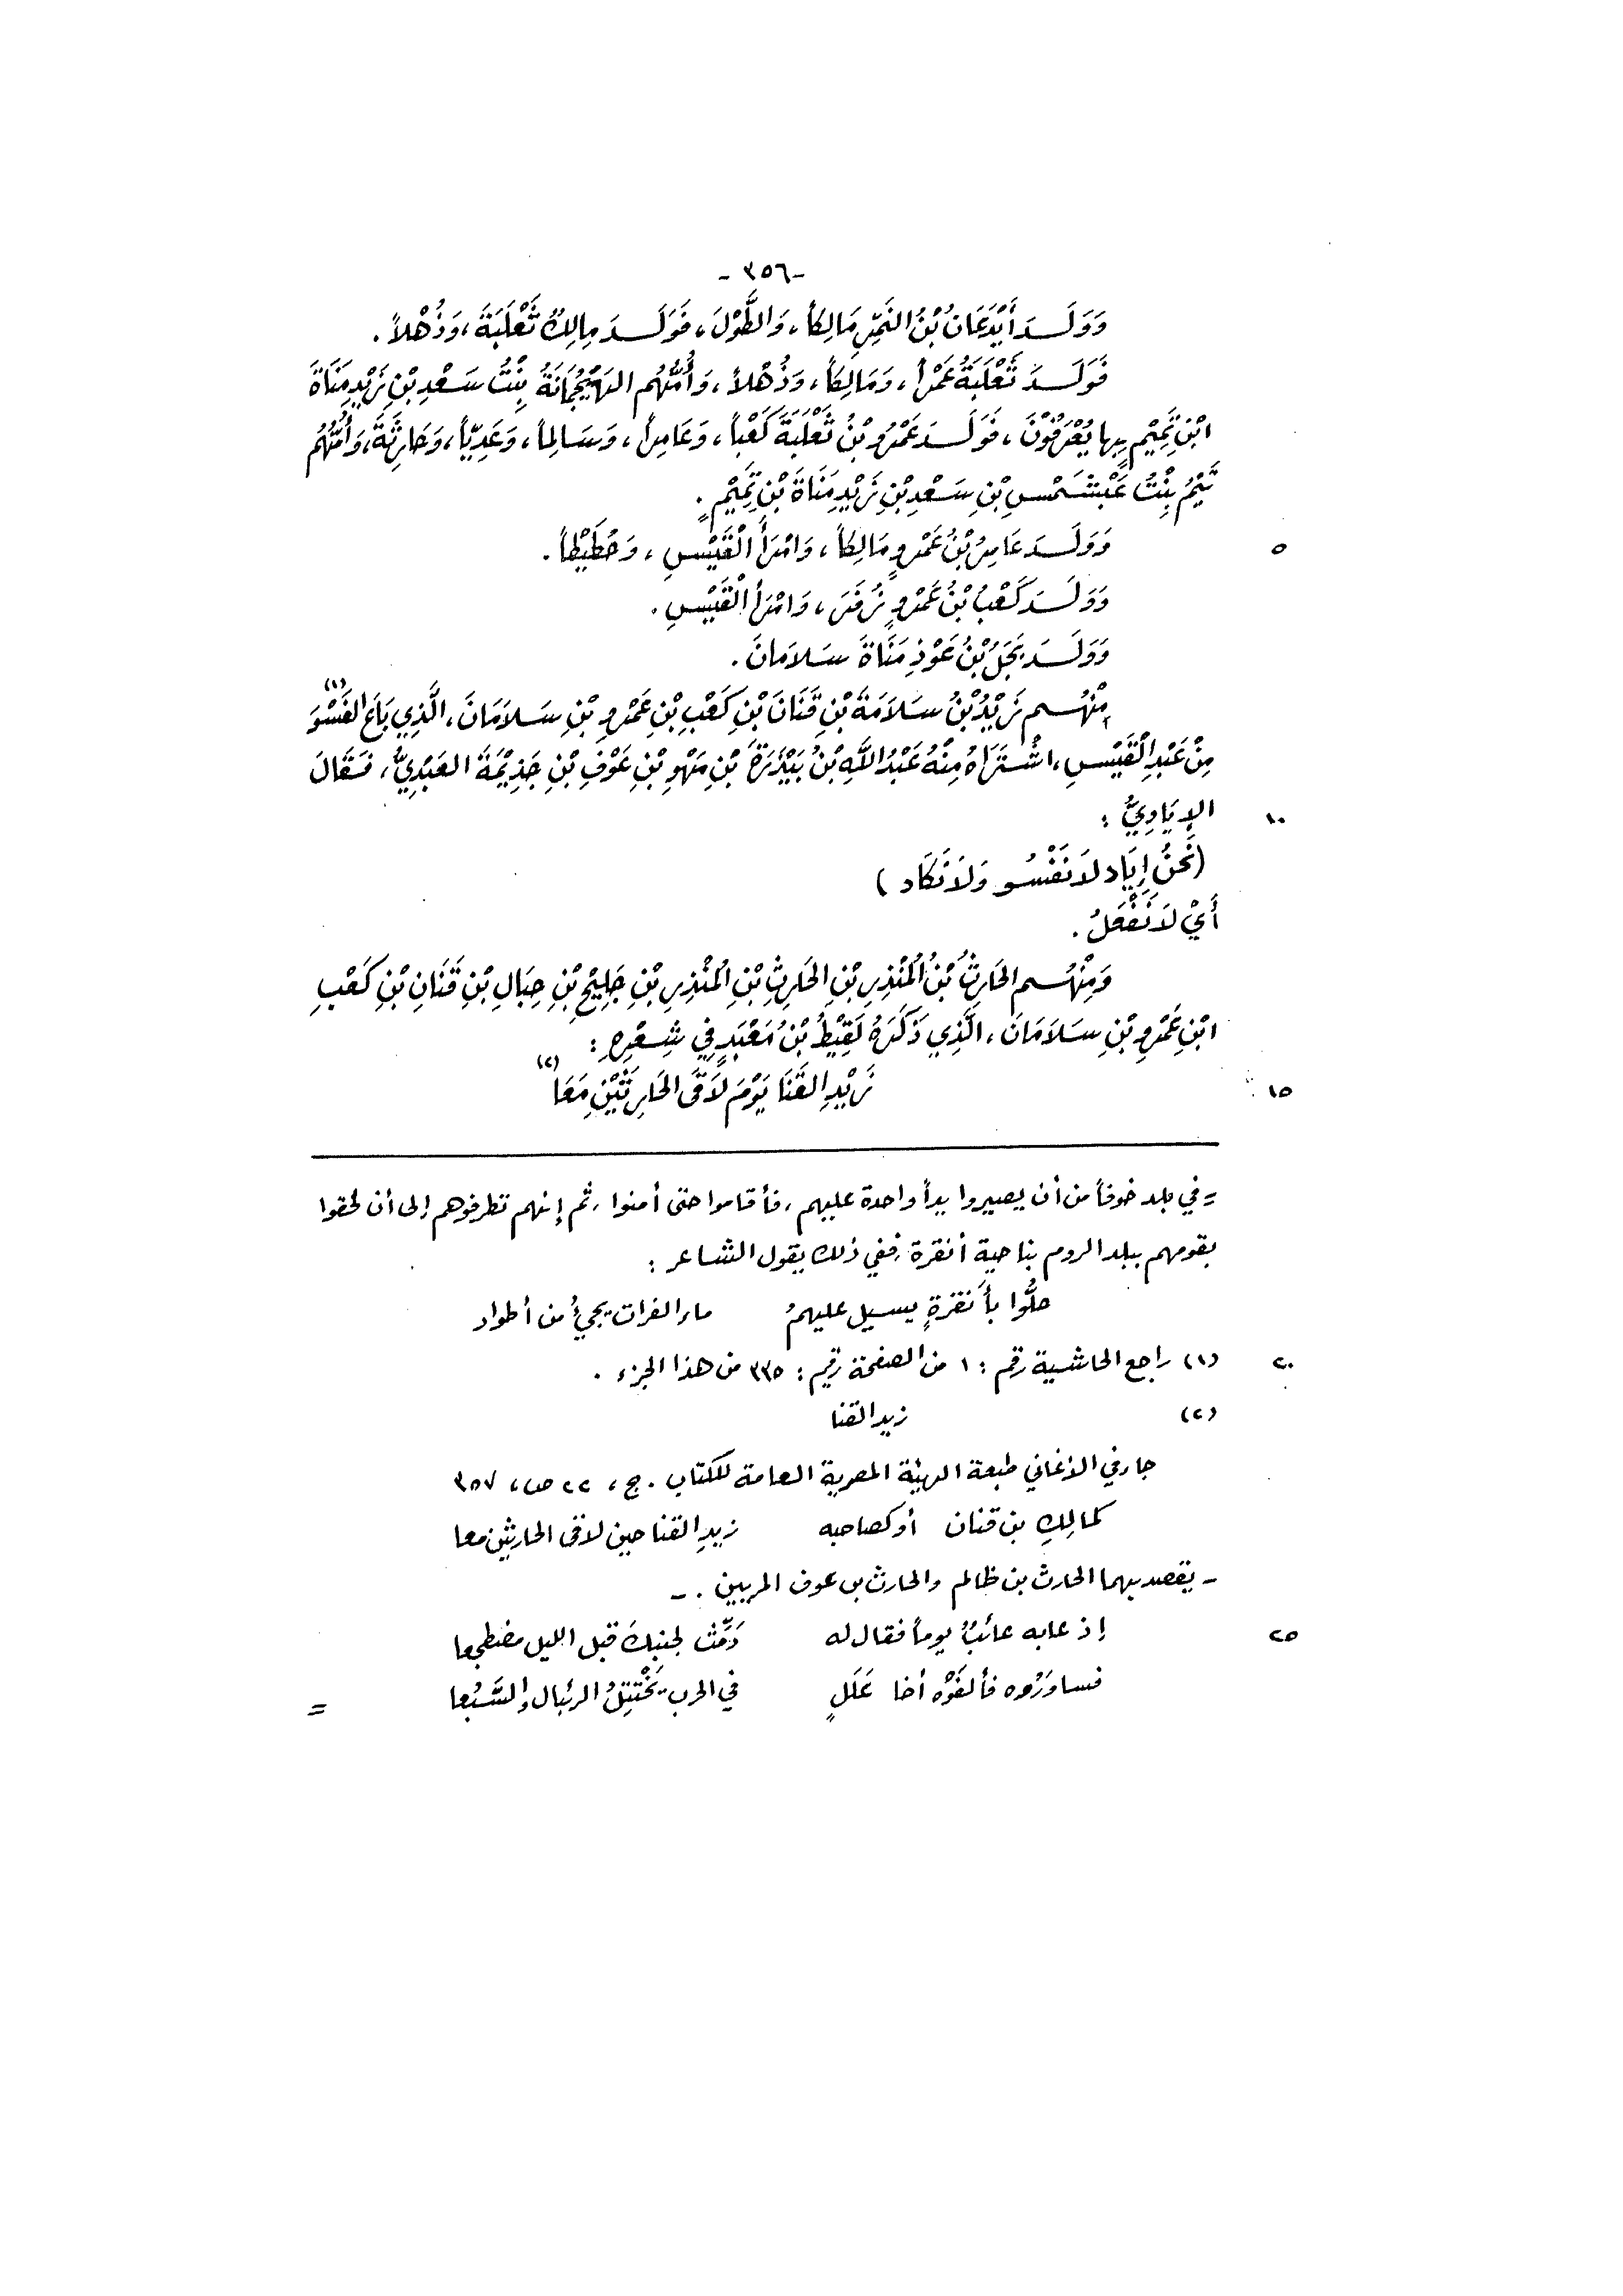 -٣٥٦-
وَوَلَـدَ أَيْدَعَانُ بْنُ النَّمِرِ مَالِكاً، وَالطَّوْلَ، فَوَلَـدَ مالِكُ ثَعْلَبَةَ، وَذُهْلاً.
فَوَلَـدَ ثَعْلَبَةُ عَمْراً، وَمَالِكاً، وَذُهْلاً، وَأُمُّهُم الهَيْجُمَانَةُ بِنْتُ سَعْدِ بْنِ زَيْدِ مَنَاةَ
ابْنِ تَمِيْمٍ بِها يُعْرَفُوْنَ، فَوَلَـدَ عَمْرُو بْنُ ثَعْلَبَةَ كَعْباً، وَعَامِراً، وَسَالِماً، وَعَدِيّاً، وَحَارِثَةَ، وَأُمُّهُمُ
تَيْمُ بِنْتُ عَبْشَمْسِ بْنِ سَعْدِ بْنِ زَيْدِ مَنَاةَ بْنِ تَمِيْمٍ.
وَوَلَـدَ عَامِرُ بْنُ عَمْرٍو مَالِكاً، وَامْرَأَ الْقَيْسِ، وَحُطَيْطاً. ٥
وَوَلَـدَ كَعْبُ بْنُ عَمْرٍو زُفَرَ، وَامْرَأَ الْقَيْسِ.
وَوَلَـدَ بَجَلُ بْنُ عَوْذِ مَنَاةَ سَلاَمانَ.
مِنْهُـم زَيْدُ بْنُ سَلاَمَةَ بْنِ قَنَانَ بْنِ كَعْبِ بْنِ عَمْرِو بْنِ سَلاَمَانَ، الَّذِي بَاعَ الفَسْوَ (١)
مِنْ عَبْدِ الْقَيْسِ، اشْتَرَاهُ مِنْهُ عَبْدُ اللَّهِ بْنُ بَيْذَرَةَ بْنِ مَهْوِ بْنِ عَوْفِ بْنِ جَذِيْمَةَ العَبْدِيُّ، فَـقَالَ
الإِيَادِيُّ: ١٠
(نَحْنُ إِيَاد لاَ نَفْسُو وَلاَ نَكَاد)
أَيْ لاَ نَفْعَلُ.
وَمِنْهُـم الحَارِثُ بْنُ الْمُنْذِرِ بْنِ الحَارِثِ بْنِ الْمُنْذِرِ بْنِ جَلِيْحِ بْنِ حِبَالِ بْنِ قَنَانِ بْنِ كَعْبِ
ابْنِ عَمْرِو بْنِ سَلاَمَانَ، الَّذِي ذَكَرَهُ لَقِيْطُ بْنُ مَعْبَدٍ فِي شِعْرِهِ:
زَيْدِ القَنَا يَوْمَ لاَقَى الحَارِثَيْنِ مَعَا (٢) ١٥
= في بلد خوفاً من أن يصيروا يداً واحدة عليهم، فأقاموا حتى أمنوا، ثم إنهم تطرفوهم إلى أن لحقوا
بقومهم ببلد الروم بناحية أنقرة، ففي ذلك يقول الشاعر:
حلُّوا بأنقرةٍ يسيل عليهمُ ماء الفرات يجيءُ من أطواد
(١) راجع الحاشية رقم: ١ من الصفحة رقم: ٣٣٥ من هذا الجزء. ٢٠
(٢) زيد القنا
جاء في الأغاني طبعة الهيئة المصرية العامة للكتاب. ج، ٢٢ ص، ٣٥٧
كمالِكِ بن قنان أو كصاحبه زيدِ القنا حين لاقى الحارثين معا
- يقصد بهما الحارث بن ظالم والحارث بن عوف المريين. -
إذ عابه عائبٌ يوماً فقال له دَمِّث لجنبك قبل الليل مضطجعا ٢٥
فساوَرُوه فألفَوْه أخا عَلَلٍ في الحرب يَخْتِلُ الرئبال والسَّبُعا =